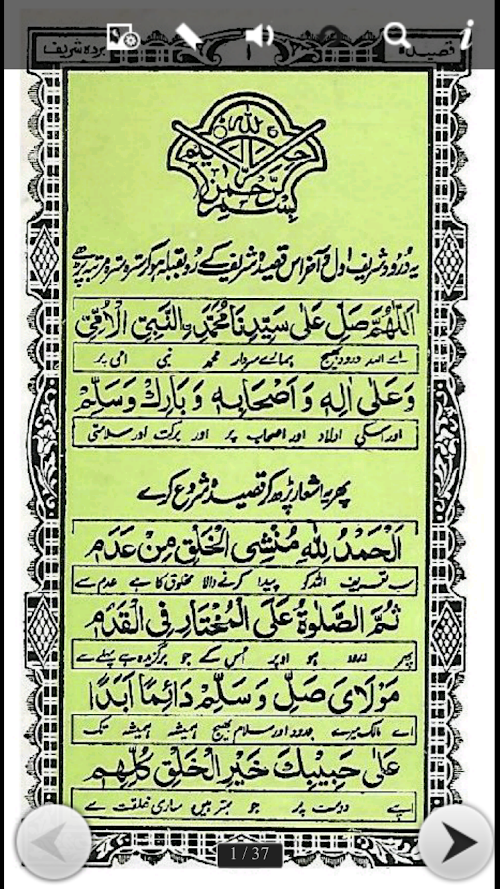 قصیدہ
۱
بردہ شریف
بسم الله الرحمن الرحيم
یہ درود شریف اول و آخر اس قصیدہ شریف کے رو بقبلہ ہو کر سترہ سترہ مرتبہ پڑھے
اَللّٰهُمَّ صَلِّ عَلٰى سَيِّدِنَا مُحَمَّدِنِ النَّبِيِّ الْاُمِّيِّ
اے اللہ درود بھیج ہمارے سردار محمد نبی امی پر
وَعَلٰى اٰلِهٖ وَاَصْحَابِهٖ وَبَارِكْ وَسَلِّمْ
اور اسکی اولاد اور اصحاب پر اور برکت اور سلامتی
پھر یہ اشعار پڑھ کر قصیدہ شروع کرے
اَلْحَمْدُ لِلّٰهِ مُنْشِی الْخَلْقِ مِنْ عَدَمٍ
سب تعریف اللہ کو پیدا کرنے والا مخلوق کا ہے عدم سے
ثُمَّ الصَّلٰوةُ عَلَى الْمُخْتَارِ فِى الْقِدَمِ
پھر درود ہو اوپر اُس کے جو برگزیدہ ہے پہلے سے
مَوْلَاىَ صَلِّ وَسَلِّمْ دَائِمًا اَبَدًا
اے مالک میرے درود اور سلام بھیج ہمیشہ ہمیشہ تک
عَلٰى حَبِيْبِكَ خَيْرِ الْخَلْقِ كُلِّهِمِ
اپنے دوست پر جو بہتر ہیں ساری خلقت سے
1 / 37